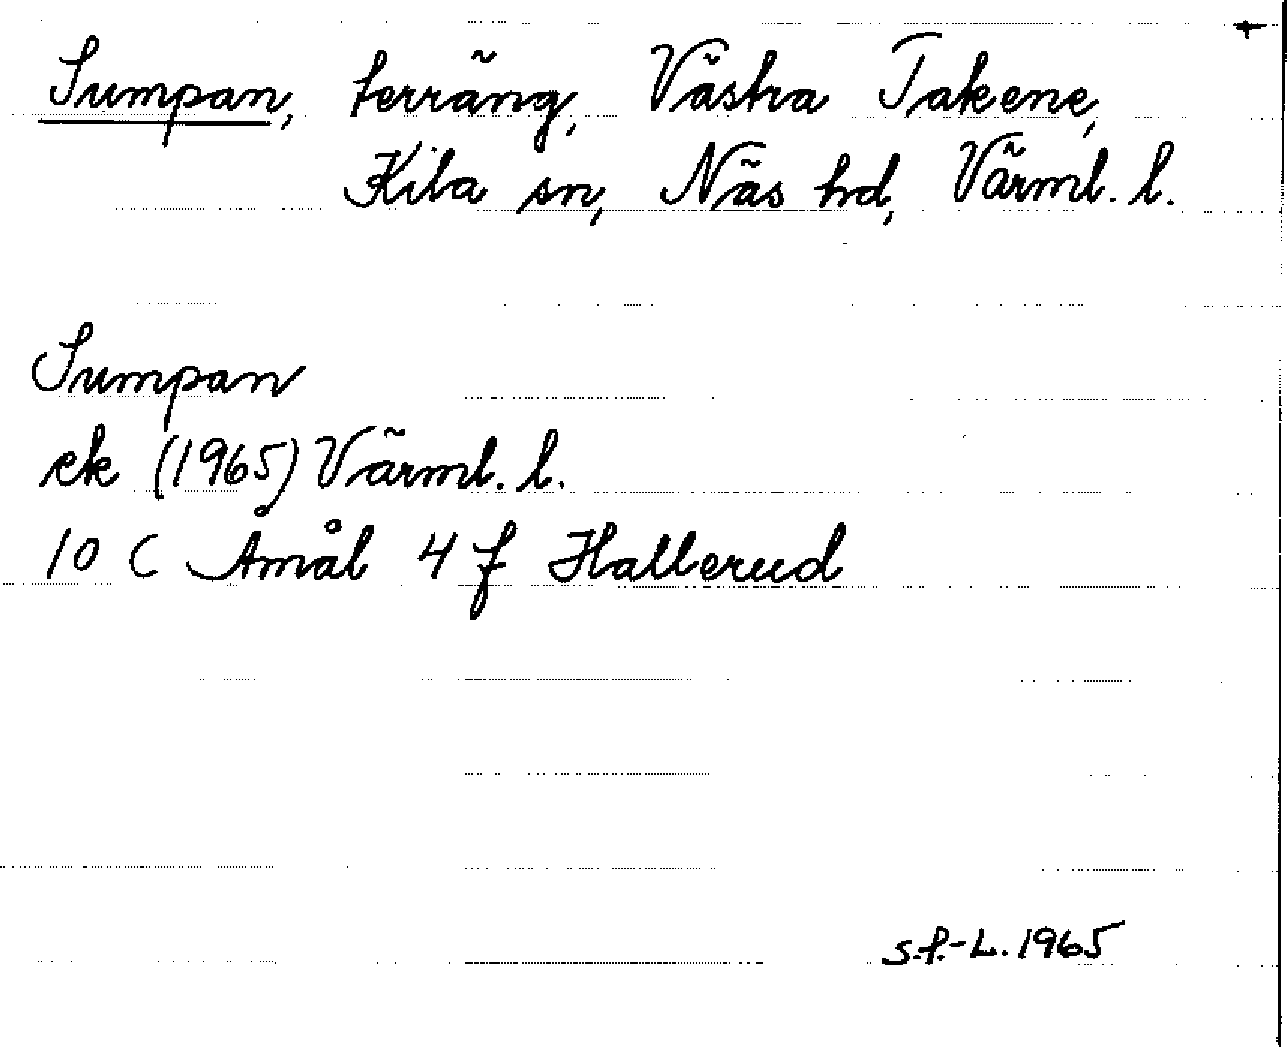 Sumpan, terräng, Västra Takene,
Kila sn, Näs hd, Värml. l.
Sumpan
ek (1965) Värml. l.
10 C Åmål 4 f Hallerud
S.f.-L. 1965